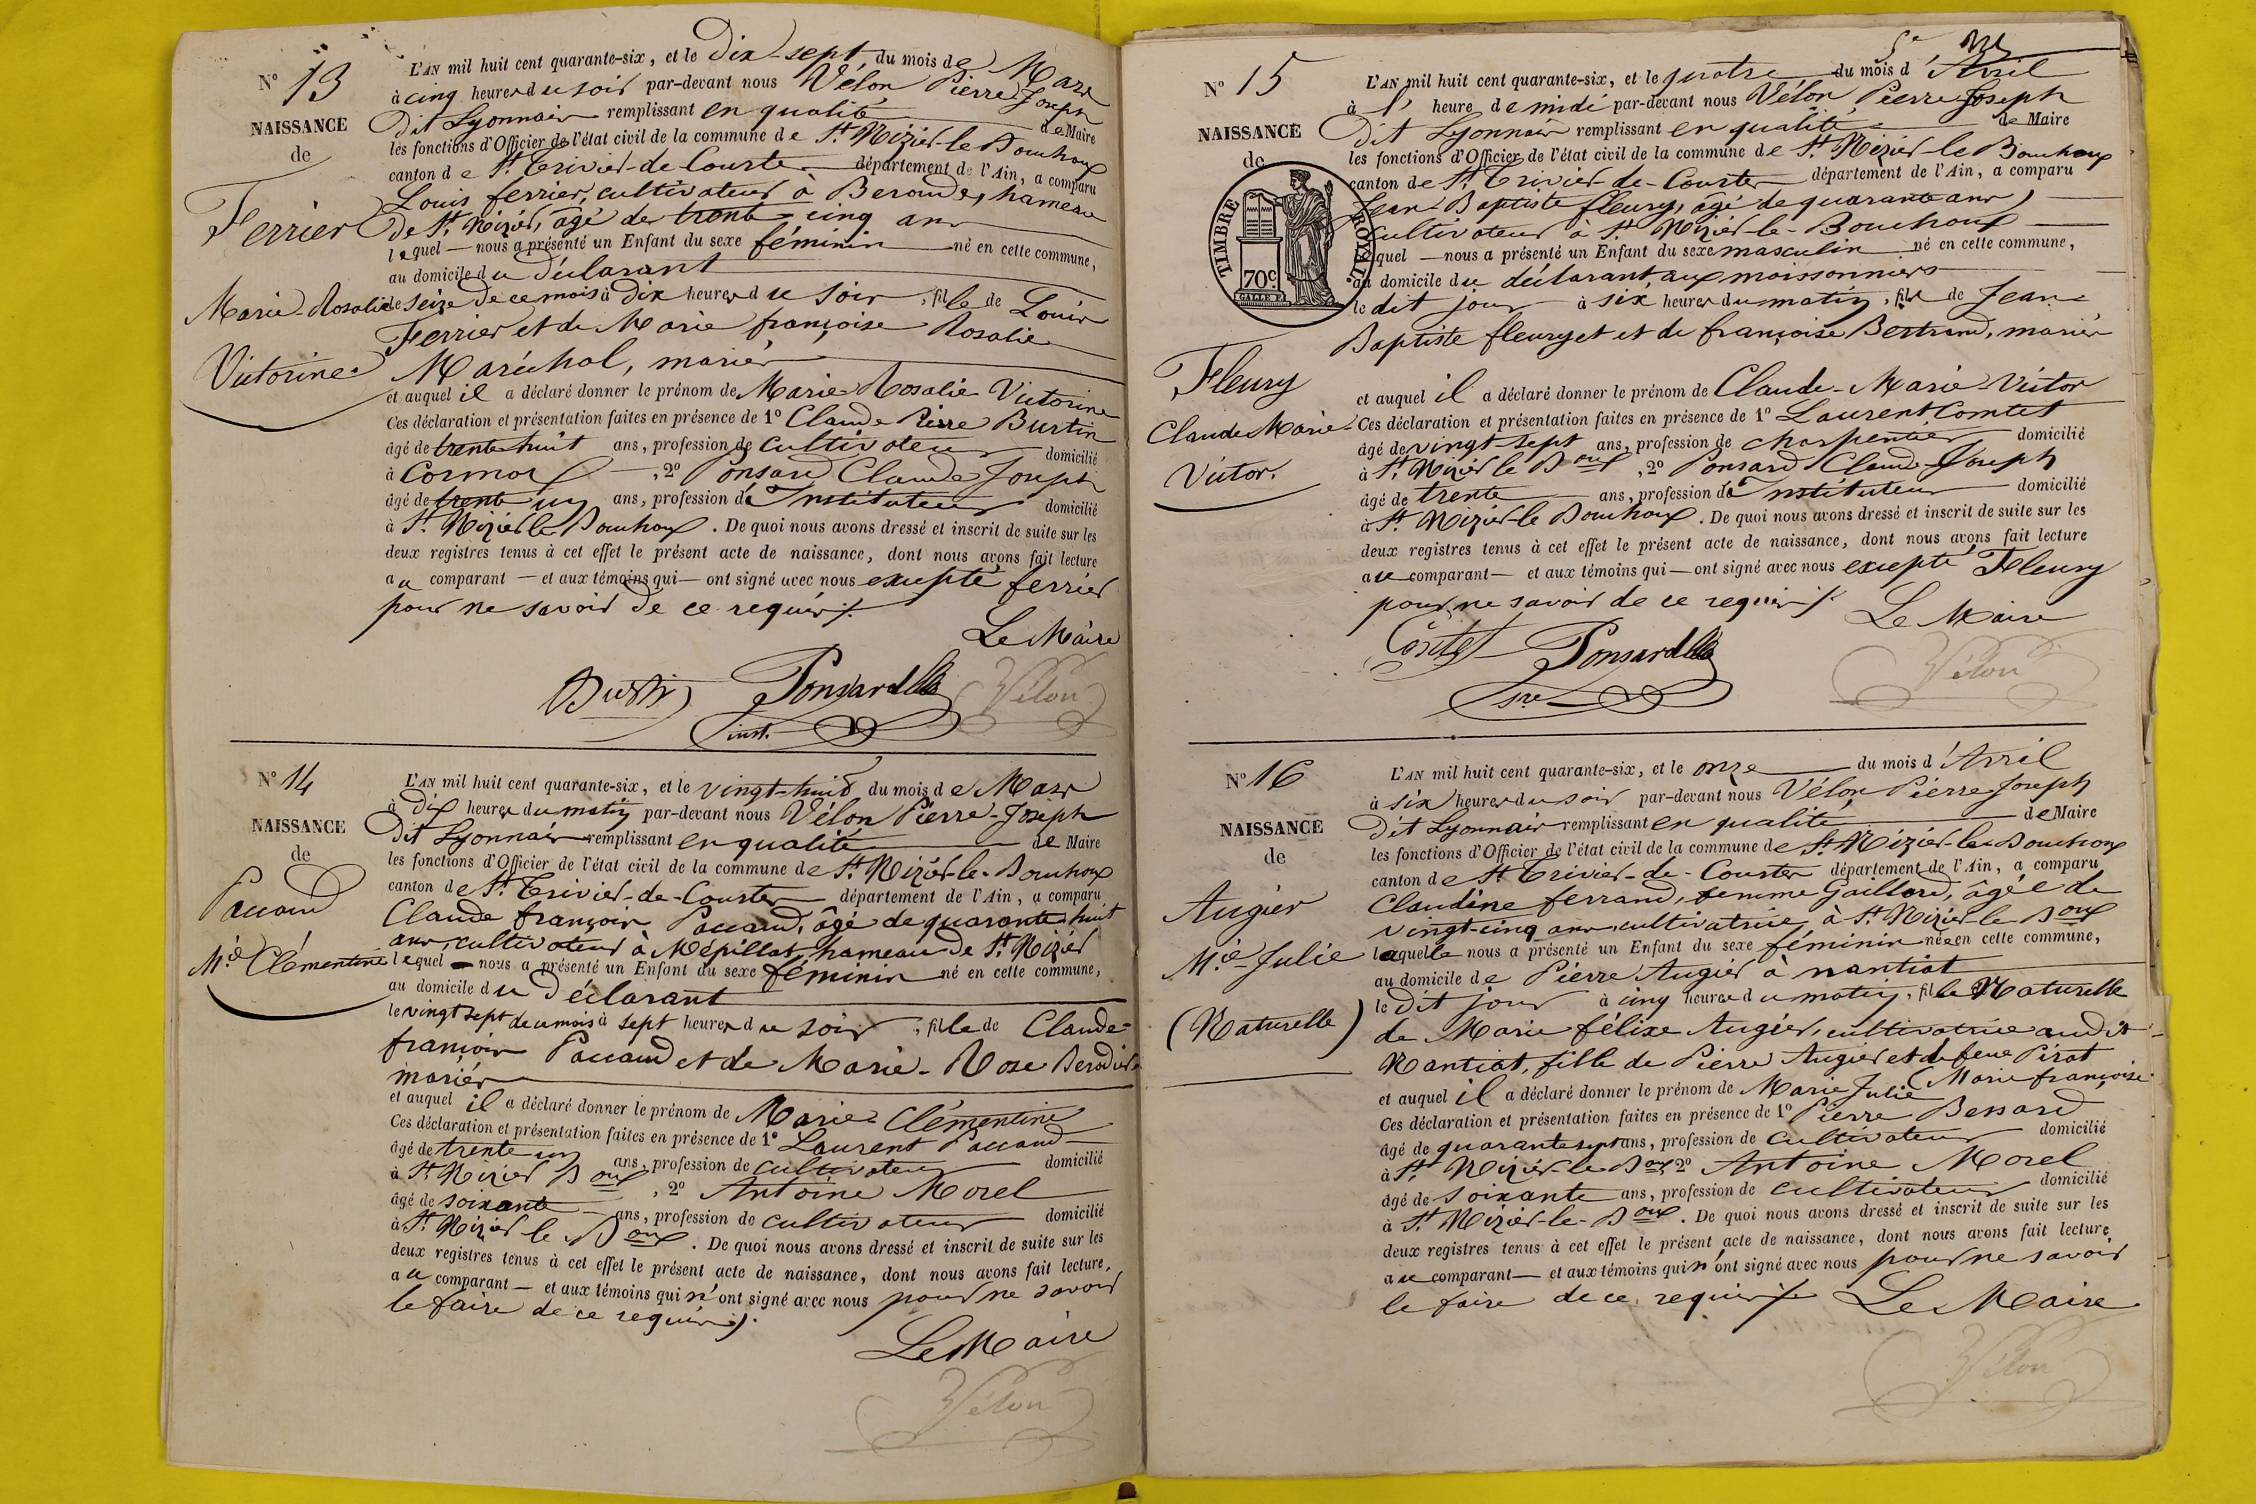 N° 13
NAISSANCE
de
Ferrier
Marie-Rosalie
Victorine
L'AN mil huit cent quarante-six, et le Dix-sept du mois de Mars
à cinq heures du soir par-devant nous Vélon Pierre Joseph
dit Lyonnais remplissant en qualité de Maire
les fonctions d'Officier de l'état civil de la commune de St. Nizier-le-Bouchoux
canton de St. Trivier-de-Courtes département de l'Ain, a comparu
Louis ferrier, cultivateur à Beroude, hameau
de St. Nizier, âgé de trente-cinq ans
lequel — nous a présenté un Enfant du sexe féminin né en cette commune,
au domicile du déclarant
le seize de ce mois à dix heures du soir, fille de Louis
Ferrier et de Marie françoise Rosalie
Maréchal, mariés
et auquel il a déclaré donner le prénom de Marie Rosalie Victorine
Ces déclaration et présentation faites en présence de 1° Claude Pierre Burtin
âgé de trente huit ans, profession de cultivateur domicilié
à Cormoz, 2° Ponsard Claude Joseph
âgé de trente un ans, profession d'Instituteur domicilié
à St. Nizier le Bouchoux. De quoi nous avons dressé et inscrit de suite sur les
deux registres tenus à cet effet le présent acte de naissance, dont nous avons fait lecture
au comparant — et aux témoins qui — ont signé avec nous excepté ferrier
pour ne savoir de ce requis ./.
Le Maire
Burtin Ponsard Vélon
inst.
N° 14
NAISSANCE
de
Paccaud
Mie Clémentine
L'AN mil huit cent quarante-six, et le vingt-huit du mois de Mars
à dix heures du matin par-devant nous Vélon Pierre-Joseph
dit Lyonnais remplissant en qualité de Maire
les fonctions d'Officier de l'état civil de la commune de St. Nizier-le-Bouchoux
canton de St. Trivier-de-Courtes département de l'Ain, a comparu
Claude françois Paccaud, âgé de quarante-huit
ans, cultivateur à Mépillat, hameau de St. Nizier
lequel — nous a présenté un Enfant du sexe féminin né en cette commune,
au domicile du déclarant
le vingt sept de ce mois à sept heures du soir, fille de Claude-
françois Paccaud et de Marie-Rose
mariés
et auquel il a déclaré donner le prénom de Marie Clémentine
Ces déclaration et présentation faites en présence de 1° Laurent Paccaud
âgé de trente un ans, profession de cultivateur domicilié
à St. Nizier Boux, 2° Antoine Morel
âgé de soixante ans, profession de cultivateur domicilié
à St. Nizier le Boux. De quoi nous avons dressé et inscrit de suite sur les
deux registres tenus à cet effet le présent acte de naissance, dont nous avons fait lecture,
au comparant — et aux témoins qui n'ont signé avec nous pour ne savoir
le faire de ce requis ./.
Le Maire
Vélon
N° 15
NAISSANCE
de
TIMBRE ROYAL
70c.
Fleury
Claude Marie
Victor.
L'AN mil huit cent quarante-six, et le quatre du mois d'Avril
à l'heure de midi par-devant nous Vélon Pierre Joseph
dit Lyonnais remplissant en qualité de Maire
les fonctions d'Officier de l'état civil de la commune de St. Nizier le Bouchoux
canton de St. Trivier-de-Courtes département de l'Ain, a comparu
Jean Baptiste fleury, âgé de quarante ans,
cultivateur à St. Nizier-le-Bouchoux
lequel — nous a présenté un Enfant du sexe masculin né en cette commune,
au domicile du déclarant, aux moissonniers
le dit jour à six heures du matin, fils de Jean-
Baptiste fleury et et de françoise Bertrand, mariés
et auquel il a déclaré donner le prénom de Claude-Marie-Victor
Ces déclaration et présentation faites en présence de 1° Laurent Comtet
âgé de vingt-sept ans, profession de charpentier domicilié
à St. Nizier le Boux, 2° Ponsard Claude Joseph
âgé de trente ans, profession d'Instituteur domicilié
à St. Nizier-le Bouchoux. De quoi nous avons dressé et inscrit de suite sur les
deux registres tenus à cet effet le présent acte de naissance, dont nous avons fait lecture
au comparant — et aux témoins qui — ont signé avec nous excepté Fleury
pour ne savoir de ce requis ./.
Le Maire
Comtet Ponsard Vélon
N° 16
NAISSANCE
de
Augier
Mie-Julie
(Naturelle)
L'AN mil huit cent quarante-six, et le onze du mois d'Avril
à six heures du soir par-devant nous Vélon Pierre Joseph
dit Lyonnais remplissant en qualité de Maire
les fonctions d'Officier de l'état civil de la commune de St. Nizier-le-Bouchoux
canton de St. Trivier-de-Courtes département de l'Ain, a comparu
Claudine ferrand, femme Gaillard, âgée de
vingt-cinq ans, cultivatrice à St. Nizier le Boux
laquelle nous a présenté un Enfant du sexe féminin née en cette commune,
au domicile de Pierre Augier à nantiat
le dit jour à cinq heures du matin, fille Naturelle
de Marie félixe Augier, cultivatrice audit
Nantiat, fille de Pierre Augier et de feue Pirat
(Marie françoise
et auquel il a déclaré donner le prénom de Marie Julie
Ces déclaration et présentation faites en présence de 1° Pierre Bessard
âgé de quarante sept ans, profession de cultivateur domicilié
à St. Nizier le Boux, 2° Antoine Morel
âgé de soixante ans, profession de cultivateur domicilié
à St. Nizier-le-Boux. De quoi nous avons dressé et inscrit de suite sur les
deux registres tenus à cet effet le présent acte de naissance, dont nous avons fait lecture,
au comparant — et aux témoins qui n'ont signé avec nous pour ne savoir
le faire de ce requis ./. Le Maire
Vélon